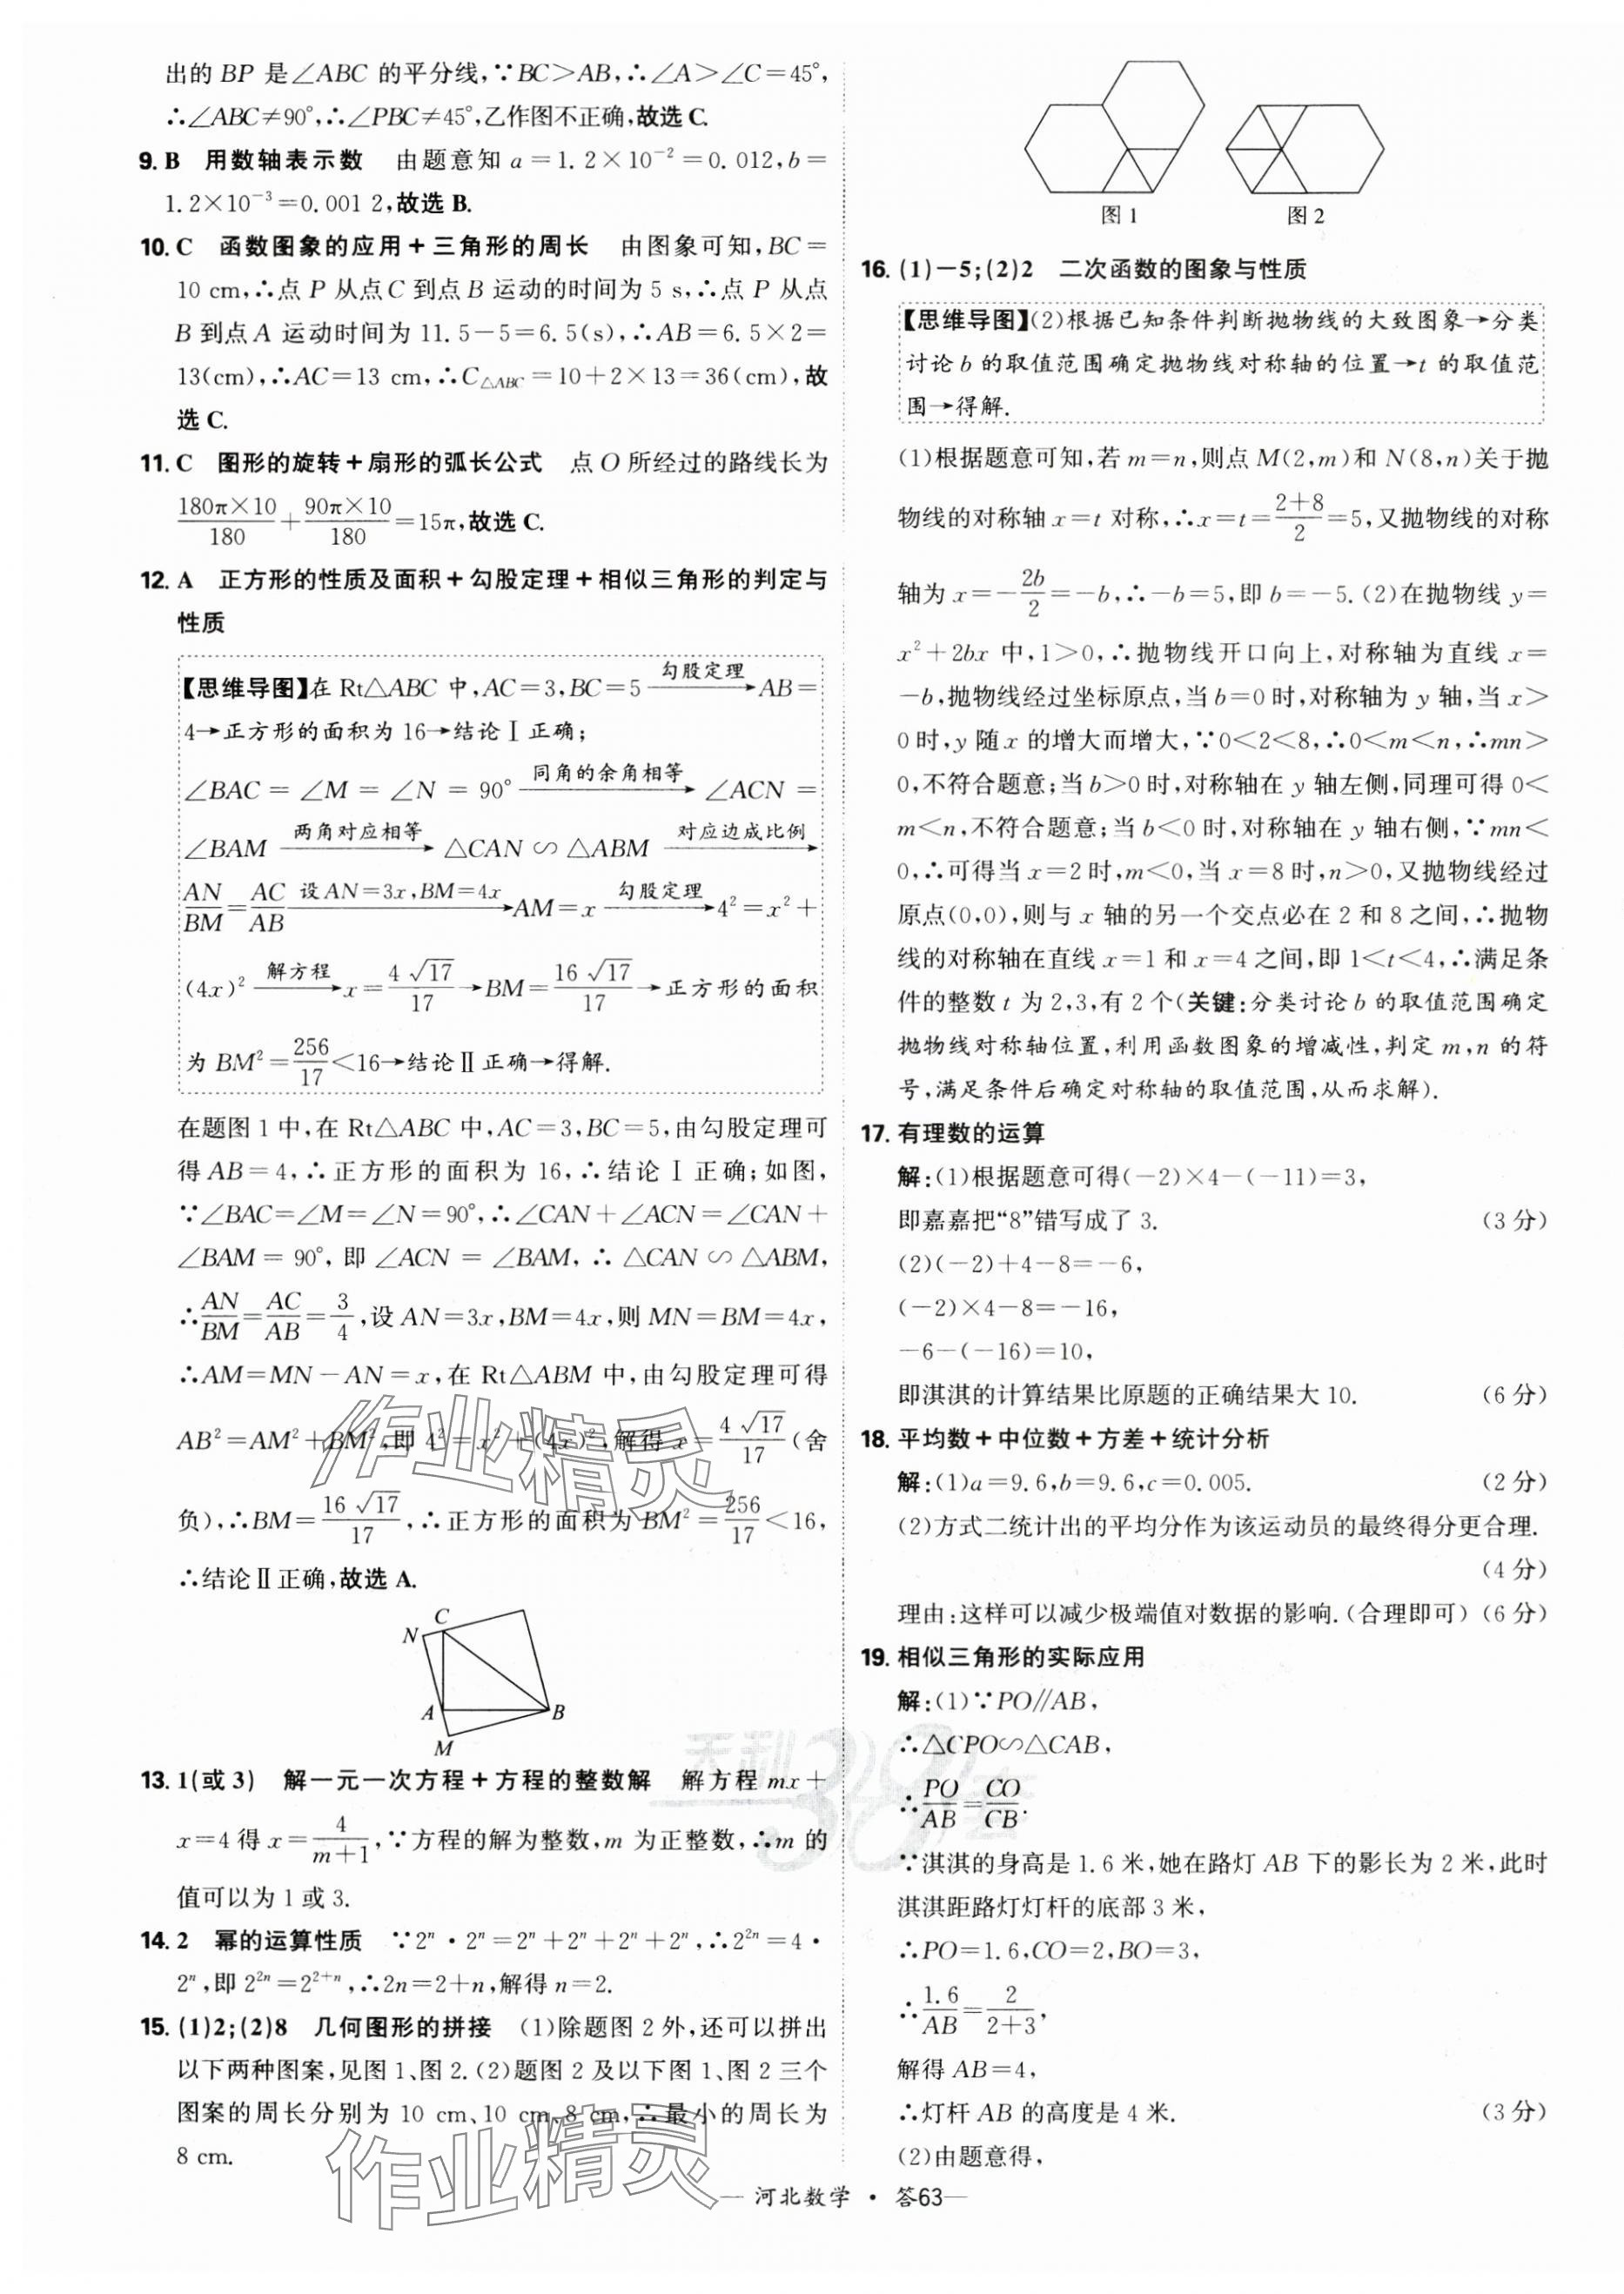 出的 BP 是∠ABC 的平分线,∵BC>AB,∴∠A>∠C=45°,
∴∠ABC≠90°,∴∠PBC≠45°,乙作图不正确,故选 C.
9. B 用数轴表示数 由题意知 a=1.2×10⁻²=0.012,b=
1.2×10⁻³=0.001 2,故选 B.
10. C 函数图象的应用+三角形的周长 由图象可知,BC=
10 cm,∴点 P 从点 C 到点 B 运动的时间为 5 s,∴点 P 从点
B 到点 A 运动时间为 11.5-5=6.5(s),∴AB=6.5×2=
13(cm),∴AC=13 cm,∴C△ABC=10+2×13=36(cm),故
选 C.
11. C 图形的旋转+扇形的弧长公式 点 O 所经过的路线长为
180π×10/180+90π×10/180=15π,故选 C.
12. A 正方形的性质及面积+勾股定理+相似三角形的判定与
性质
【思维导图】在 Rt△ABC 中,AC=3,BC=5 勾股定理→AB=
4→正方形的面积为 16→结论Ⅰ正确;
∠BAC=∠M=∠N=90° 同角的余角相等→∠ACN=
∠BAM 两角对应相等→△CAN∽△ABM 对应边成比例→
AN/BM=AC/AB 设 AN=3x,BM=4x→AM=x 勾股定理→4²=x²+
(4x)² 解方程→x=4√17/17→BM=16√17/17→正方形的面积
为 BM²=256/17<16→结论Ⅱ正确→得解.
在题图 1 中,在 Rt△ABC 中,AC=3,BC=5,由勾股定理可
得 AB=4,∴正方形的面积为 16,∴结论Ⅰ正确;如图,
∵∠BAC=∠M=∠N=90°,∴∠CAN+∠ACN=∠CAN+
∠BAM=90°,即∠ACN=∠BAM,∴△CAN∽△ABM,
∴AN/BM=AC/AB=3/4,设 AN=3x,BM=4x,则 MN=BM=4x,
∴AM=MN-AN=x,在 Rt△ABM 中,由勾股定理可得
AB²=AM²+BM²,即 4²=x²+(4x)²,解得 x=4√17/17(舍
负),∴BM=16√17/17,∴正方形的面积为 BM²=256/17<16,
∴结论Ⅱ正确,故选 A.
C
N
A
B
M
13. 1(或 3) 解一元一次方程+方程的整数解 解方程 mx+
x=4 得 x=4/(m+1),∵方程的解为整数,m 为正整数,∴m 的
值可以为 1 或 3.
14. 2 幂的运算性质 ∵2ⁿ·2ⁿ=2ⁿ+2ⁿ+2ⁿ+2ⁿ,∴2²ⁿ=4·
2ⁿ,即 2²ⁿ=2²⁺ⁿ,∴2n=2+n,解得 n=2.
15. (1)2;(2)8 几何图形的拼接 (1)除题图 2 外,还可以拼出
以下两种图案,见图 1、图 2.(2)题图 2 及以下图 1、图 2 三个
图案的周长分别为 10 cm、10 cm、8 cm,∴最小的周长为
8 cm.
图 1
图 2
16. (1)-5;(2)2 二次函数的图象与性质
【思维导图】(2)根据已知条件判断抛物线的大致图象→分类
讨论 b 的取值范围确定抛物线对称轴的位置→t 的取值范
围→得解.
(1)根据题意可知,若 m=n,则点 M(2,m)和 N(8,n)关于抛
物线的对称轴 x=t 对称,∴x=t=(2+8)/2=5,又抛物线的对称
轴为 x=-2b/2=-b,∴-b=5,即 b=-5.(2)在抛物线 y=
x²+2bx 中,1>0,∴抛物线开口向上,对称轴为直线 x=
-b,抛物线经过坐标原点,当 b=0 时,对称轴为 y 轴,当 x>
0 时,y 随 x 的增大而增大,∵0<2<8,∴0<m<n,∴mn>
0,不符合题意;当 b>0 时,对称轴在 y 轴左侧,同理可得 0<
m<n,不符合题意;当 b<0 时,对称轴在 y 轴右侧,∵mn<
0,∴可得当 x=2 时,m<0,当 x=8 时,n>0,又抛物线经过
原点(0,0),则与 x 轴的另一个交点必在 2 和 8 之间,∴抛物
线的对称轴在直线 x=1 和 x=4 之间,即 1<t<4,∴满足条
件的整数 t 为 2,3,有 2 个(关键:分类讨论 b 的取值范围确定
抛物线对称轴位置,利用函数图象的增减性,判定 m,n 的符
号,满足条件后确定对称轴的取值范围,从而求解).
17. 有理数的运算
解:(1)根据题意可得(-2)×4-(-11)=3,
即嘉嘉把“8”错写成了 3. (3 分)
(2)(-2)+4-8=-6,
(-2)×4-8=-16,
-6-(-16)=10,
即淇淇的计算结果比原题的正确结果大 10. (6 分)
18. 平均数+中位数+方差+统计分析
解:(1)a=9.6,b=9.6,c=0.005. (2 分)
(2)方式二统计出的平均分作为该运动员的最终得分更合理.
(4 分)
理由:这样可以减少极端值对数据的影响.(合理即可)(6 分)
19. 相似三角形的实际应用
解:(1)∵PO∥AB,
∴△CPO∽△CAB,
∴PO/AB=CO/CB.
∵淇淇的身高是 1.6 米,她在路灯 AB 下的影长为 2 米,此时
淇淇距路灯灯杆的底部 3 米,
∴PO=1.6,CO=2,BO=3,
∴1.6/AB=2/(2+3),
解得 AB=4,
∴灯杆 AB 的高度是 4 米. (3 分)
(2)由题意得,
作业精灵
天利38套
作业精灵
— 河北数学 · 答63—